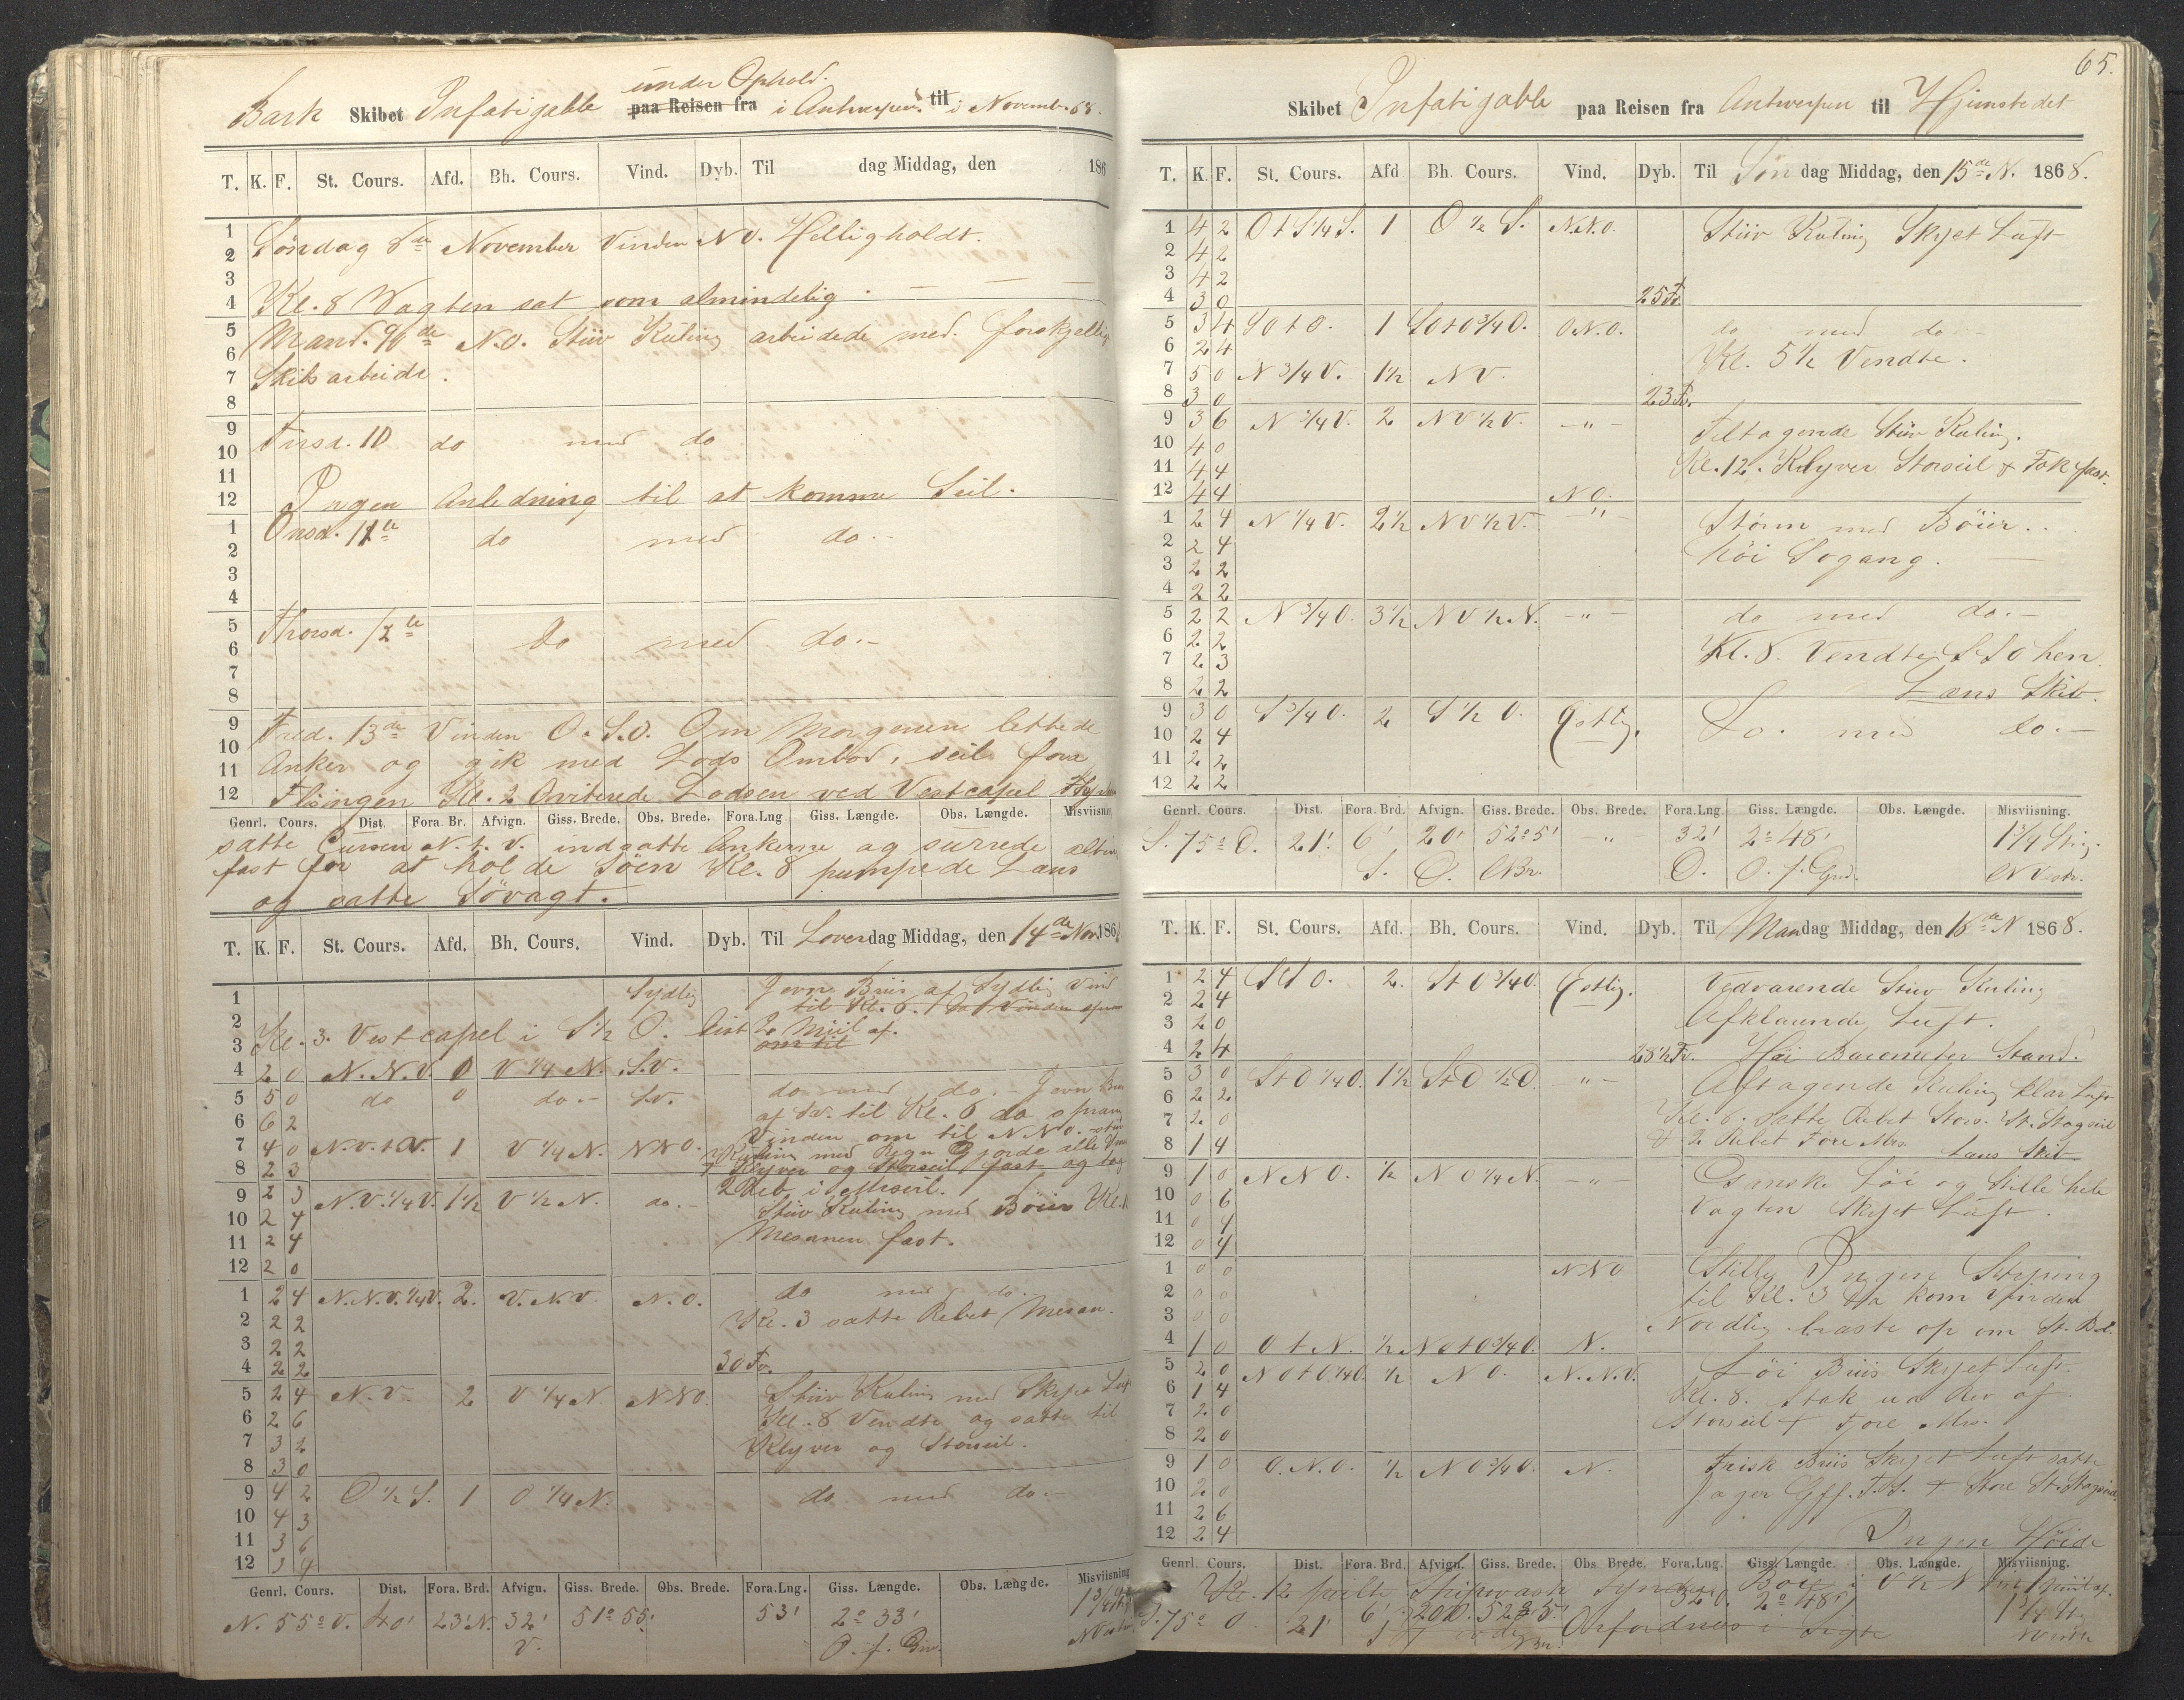 under Ophold.
Bark Skibet Infatigable paa Reisen fra i Antwerpen til i Novemb. 68.
T. K. F. St. Cours. Afd. Bh. Cours. Vind. Dyb. Til dag Middag, den 186
1
2 Söndag 8de November Vinden NO. Helligholdt.
3
4 Kl. 8 Vagten sat som almindelig.
5 Mand. 9de N.O. Stiiv Kuling arbeidede med forskjellig
6
7 Skibsarbeide.
8
9 Tirsd. 10 do med do
10
11
12 Ingen Anledning til at komme Seil.
1 Onsd. 11te do med do.-
2
3
4
5 Thorsd. 12te do med do.-
6
7
8
9 Fred. 13de Vinden O.S.O. Om Morgenen lettede
10
11 Anker og gik med Lods Ombord, seil fore
12 Flisingen Kl. 2 Qviterede Lodsen ved Vestcapel
Genrl. Cours. Dist. Fora. Br. Afvign. Giss. Brede. Obs. Brede. Fora.Lng. Giss. Længde. Obs. Længde. Misviisning
satte Cursen N.t.V. indsatte Ankerne og surrede alting
fast for at holde Söen Kl. 8 pumpede Læns
og satte Sövagt.
T. K. F. St. Cours. Afd. Bh. Cours. Vind. Dyb. Til Loverdag Middag, den 14de Nov. 186
1 Sydlig Jevn Briis af Sydlig Vind
2 til Kl. 6. da Vinden sprang
3 Kl. 3. Vestcapel i S ½ O. dist 2 Miil af.
om til
4 2 0 N.N.V. 0 V ¼ N. S.V.
5 5 0 do 0 do.- S.V. do med do.- Jevn Briis
6 6 2 af S.V. til Kl. 6 da sprang
7 4 0 N.V.t.V. 1 V ¼ N. NNO. Vinden om til NNO. stiv
8 2 3 Kuling med Regn Gjorde alle
Klyver og Storseil fast og tog
9 2 3 N.V. ¼ V. 1½ V ½ N. do.- 2 Reb i Mersseil.
10 2 4 Stiiv Kuling med Böier Kl.
11 2 4 Mesanen fast.
12 2 0
1 2 4 N.N.V. ¼ V. 2. V.N.V. N.O. do med do.
2 2 2 Kl. 3 satte Rebet Mesan.
3 2 2
4 2 2 30 Fv.
5 2 4 N.V. 2 V ¼ N. NNO. Stiiv Kuling med Skyet Luft
6 2 6 Kl. 8 Vendte og satte til
7 3 2 Klyver og Storseil.
8 3 0
9 4 2 O ½ S. 1 O ¼ N. do med do.-
10 4 3
11 3 6
12 3 4
Genrl. Cours. Dist. Fora. Brd. Afvign. Giss. Brede. Obs. Brede. Fora.Lng. Giss. Længde. Obs. Længde. Misviisning
N. 55° V. 40' 23' N. 32' 51° 55' 53' 2° 33' 1¾ Str
V. O. f. Grw. NVestr
65.
Skibet Infatigable paa Reisen fra Antwerpen til Hjemstedet
T. K. F. St. Cours. Afd Bh. Cours. Vind. Dyb. Til Søndag Middag, den 15de N. 1868.
1 4 2 O t S ¼ S. 1 O ½ S. N.N.O. Stiiv Kuling Skyet Luft
2 4 2
3 4 2
4 3 0 25 Fv.
5 3 4 SO t O. 1 SO t O ¾ O. O.N.O. do med do-
6 2 4 Kl. 5½ Vendte.
7 5 0 N ¾ V. 1½ NV.
8 3 0 23 Fv.
9 3 6 N ¾ V. 2 NV ½ V. -"- Tiltagende Stiiv Kuling.
10 4 0
11 4 4 Kl. 12. Klyver Storseil & Fok fast.
12 4 4 NO.
1 2 4 N ¼ V. 2½ NV ½ V. -"- Storm med Böier..
2 2 4 höi Sogang.
3 2 2
4 2 2
5 2 2 N ¾ O. 3½ NV ½ N. -"- do med do.-
6 2 2
7 2 3 Kl. 8. Vendte SSO hen
8 2 2 Læns Skib.
9 3 0 S ¾ O. 2 S ½ O. Östlig. Do. med do.-
10 2 4
11 2 2
12 2 2
Genrl. Cours. Dist. Fora. Brd. Afvign. Giss. Brede. Obs. Brede. Fora.Lng. Giss. Længde. Obs. Længde. Misviisning.
S. 75° O. 21' 6' 20' 52° 5' -"- 32' 2° 48' 1¾ Strg.
S. O. NBr. O. O. f. Grd. NVestr.
T. K. F. St. Cours. Afd. Bh. Cours. Vind. Dyb. Til Mandag Middag, den 16de N 1868.
1 2 4 StO. 2. StO ¾ O. Östlig. Vedvarende Stiv Kuling
2 2 4 Afklarende Luft.
3 2 0
4 2 4 28½ Fv. Höi Barometer Stand.
5 3 0 StO ¼ O. 1½ StO ½ O. "- Aftagende Kuling klar Luft
6 2 2 Kl. 6. satte Rebet Stors. St. Stagseil
7 2 0
8 1 4 & 2 Rebet Fore Mrs. Læns Skib
9 1 0 NNO. ½ NO ¼ N. -"- Ganske Löi og Stille hele
10 0 6 Vagten Skyet Luft.
11 0 4
12 0 4
1 0 0 NNO Stille Ingen Styring
2 0 0 til Kl. 3 da kom Vinden
3 0 0 Nordlig braste op om St. B.
4 1 0 O t N. ½ NO t O ¾ O. N.
5 2 0 NO t O ¼ O. ½ NO. N.N.V. Löi Briis Skyet Luft.
6 1 4 Kl. 8. Stak ud Rev af
7 2 0 Storseil & Fore Mrs.
8 2 0
9 1 0 O.N.O. ½ NO ¾ O. N. Frisk Briis Skyet Luft satte
10 2 0 Jager Gff. T.S. & Store St. Stagseil
11 2 6
12 2 4 Ingen Höide
Genrl. Cours. Dist. Fora. Brd. Afvign. Giss. Brede. Obs Brede. Fora.Lng. Giss. Længde. Obs. Længde. Misviisning.
Kl. 12 peilte Shipwash Boie i V ½ N
S. 75° O. 21' 6' 20' O. 52° 5' 32' O. 2° 48' 1¾ Str
S NBr. Orfordness i Sigte